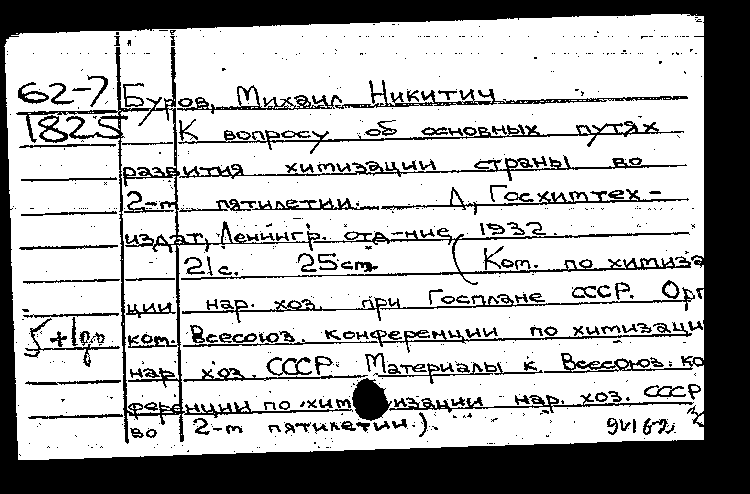 62-7 Буров, Михаил Никитич
1825 К вопросу об основных путях
развития химизации страны во
2-м пятилетии. Л., Госхимтех-
издат, Ленингр. отд-ние, 1932.
21с. 25см. (Ком. по химиза
ции нар. хоз. при Госплане СССР. Орг
ком. Всесоюз. конференции по химизаци
нар. хоз. СССР. Материалы к Всесоюз. ко
ференции по химизации нар. хоз. СССР
во 2-м пятилетии.).